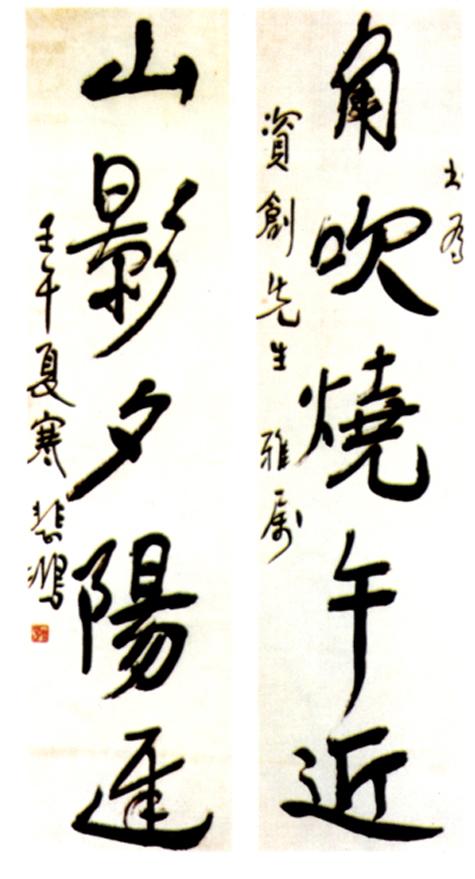 書為
角吹燒午近
資創先生 雅屬
山影夕陽遲
壬午夏寒 悲鴻